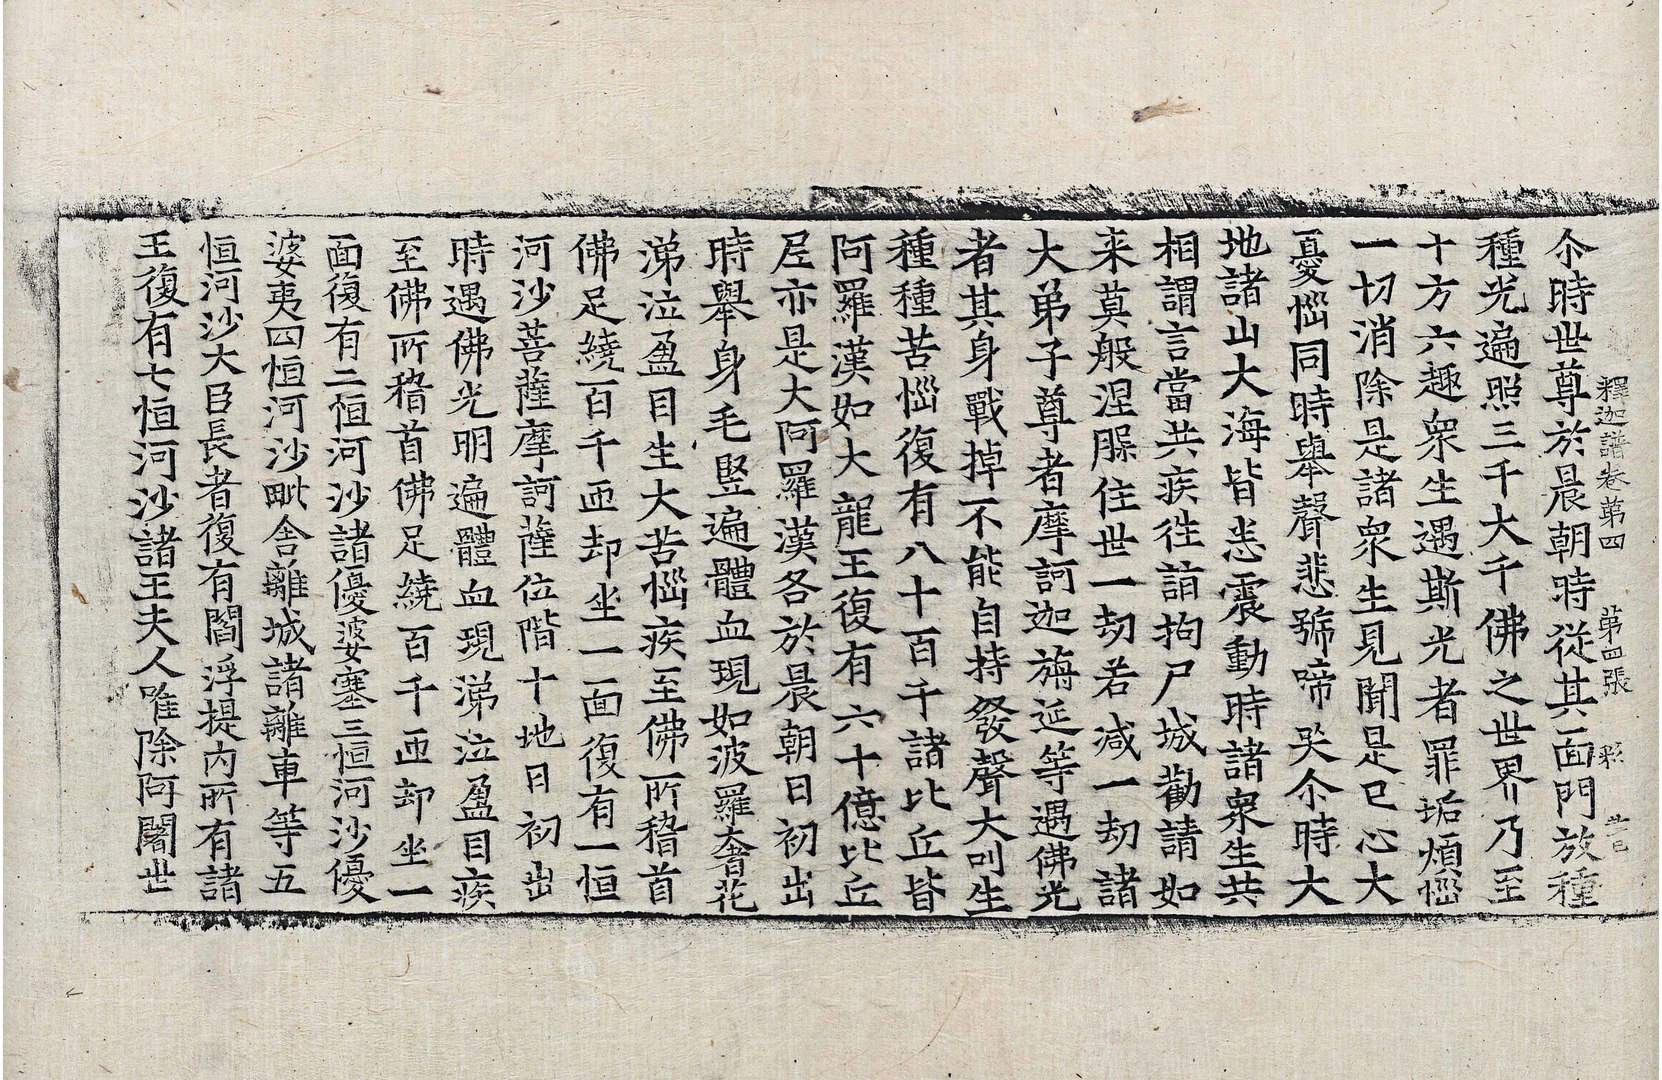 釋迦譜卷第四 第四張 㣎
尒時世尊於晨朝時從其面門放種
種光遍照三千大千佛之世界乃至
十方六趣衆生遇斯光者罪垢煩惱
一切消除是諸衆生見聞是已心大
憂惱同時舉聲悲號啼哭尒時大
地諸山大海皆悉震動時諸衆生共
相謂言當共疾徃詣拘尸城勸請如
来莫般涅槃住世一劫若减一劫諸
大弟子尊者摩訶迦旃延等遇佛光
者其身戰掉不能自持發聲大叫生
種種苦惱復有八十百千諸比丘皆
阿羅漢如大龍王復有六十億比丘
尼亦是大阿羅漢各於晨朝日初出
時舉身毛竪遍體血現如波羅奢花
涕泣盈目生大苦惱疾至佛所稽首
佛足繞百千匝却坐一面復有一恒
河沙菩薩摩訶薩位階十地日初出
時遇佛光明遍體血現涕泣盈目疾
至佛所稽首佛足繞百千匝却坐一
面復有二恒河沙諸優婆塞三恒河沙優
婆夷四恒河沙毗舍離城諸離車等五
恒河沙大臣長者復有閻浮提内所有諸
王復有七恒河沙諸王夫人唯除阿闍世